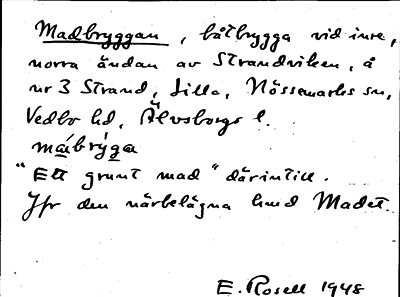 Madbryggan, båtbrygga vid inre,
norra ändan av Strandviken, å
nr 3 Strand, Lilla, Nössemarks sn,
Vedbo hd, Älvsborgs l.
mábrýga
"Ett grunt mad" därintill.
Jfr den närbelägna hmd Madet.
E. Rosell 1948